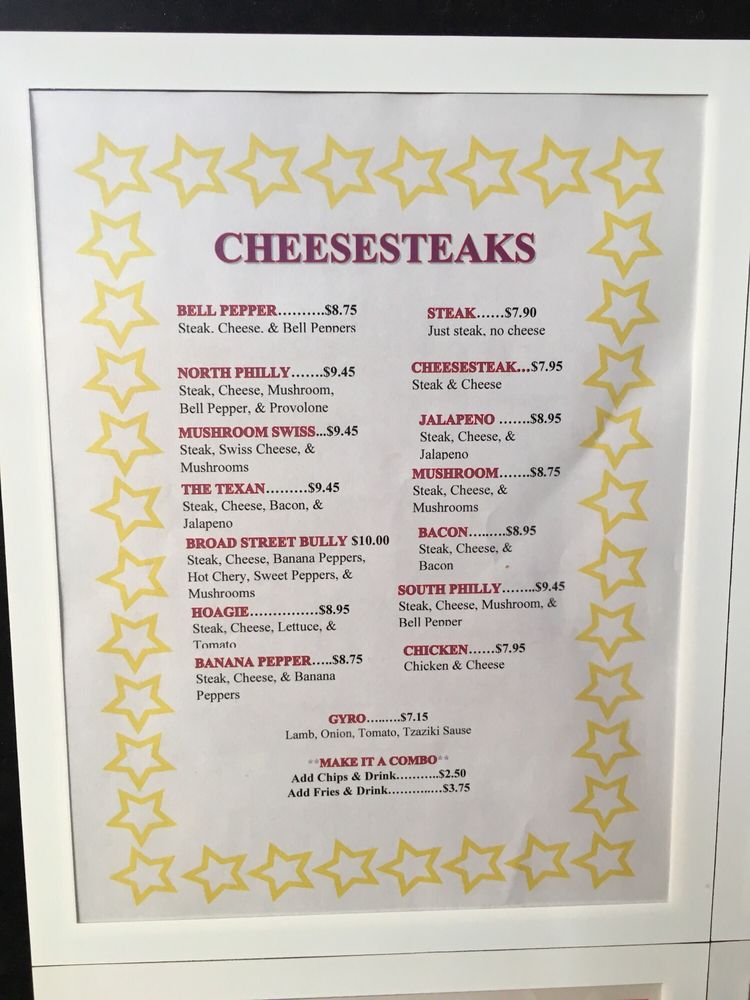 CHEESESTEAKS
BELL PEPPER..........$8.75
Steak, Cheese, & Bell Peppers
NORTH PHILLY.......$9.45
Steak, Cheese, Mushroom,
Bell Pepper, & Provolone
MUSHROOM SWISS...$9.45
Steak, Swiss Cheese, &
Mushrooms
THE TEXAN.........$9.45
Steak, Cheese, Bacon, &
Jalapeno
BROAD STREET BULLY $10.00
Steak, Cheese, Banana Peppers,
Hot Chery, Sweet Peppers, &
Mushrooms
HOAGIE...............$8.95
Steak, Cheese, Lettuce, &
Tomato
BANANA PEPPER.....$8.75
Steak, Cheese, & Banana
Peppers
STEAK......$7.90
Just steak, no cheese
CHEESESTEAK...$7.95
Steak & Cheese
JALAPENO .......$8.95
Steak, Cheese, &
Jalapeno
MUSHROOM.......$8.75
Steak, Cheese, &
Mushrooms
BACON.........$8.95
Steak, Cheese, &
Bacon
SOUTH PHILLY........$9.45
Steak, Cheese, Mushroom, &
Bell Pepper
CHICKEN......$7.95
Chicken & Cheese
GYRO.........$7.15
Lamb, Onion, Tomato, Tzaziki Sause
**MAKE IT A COMBO**
Add Chips & Drink...........$2.50
Add Fries & Drink..............$3.75